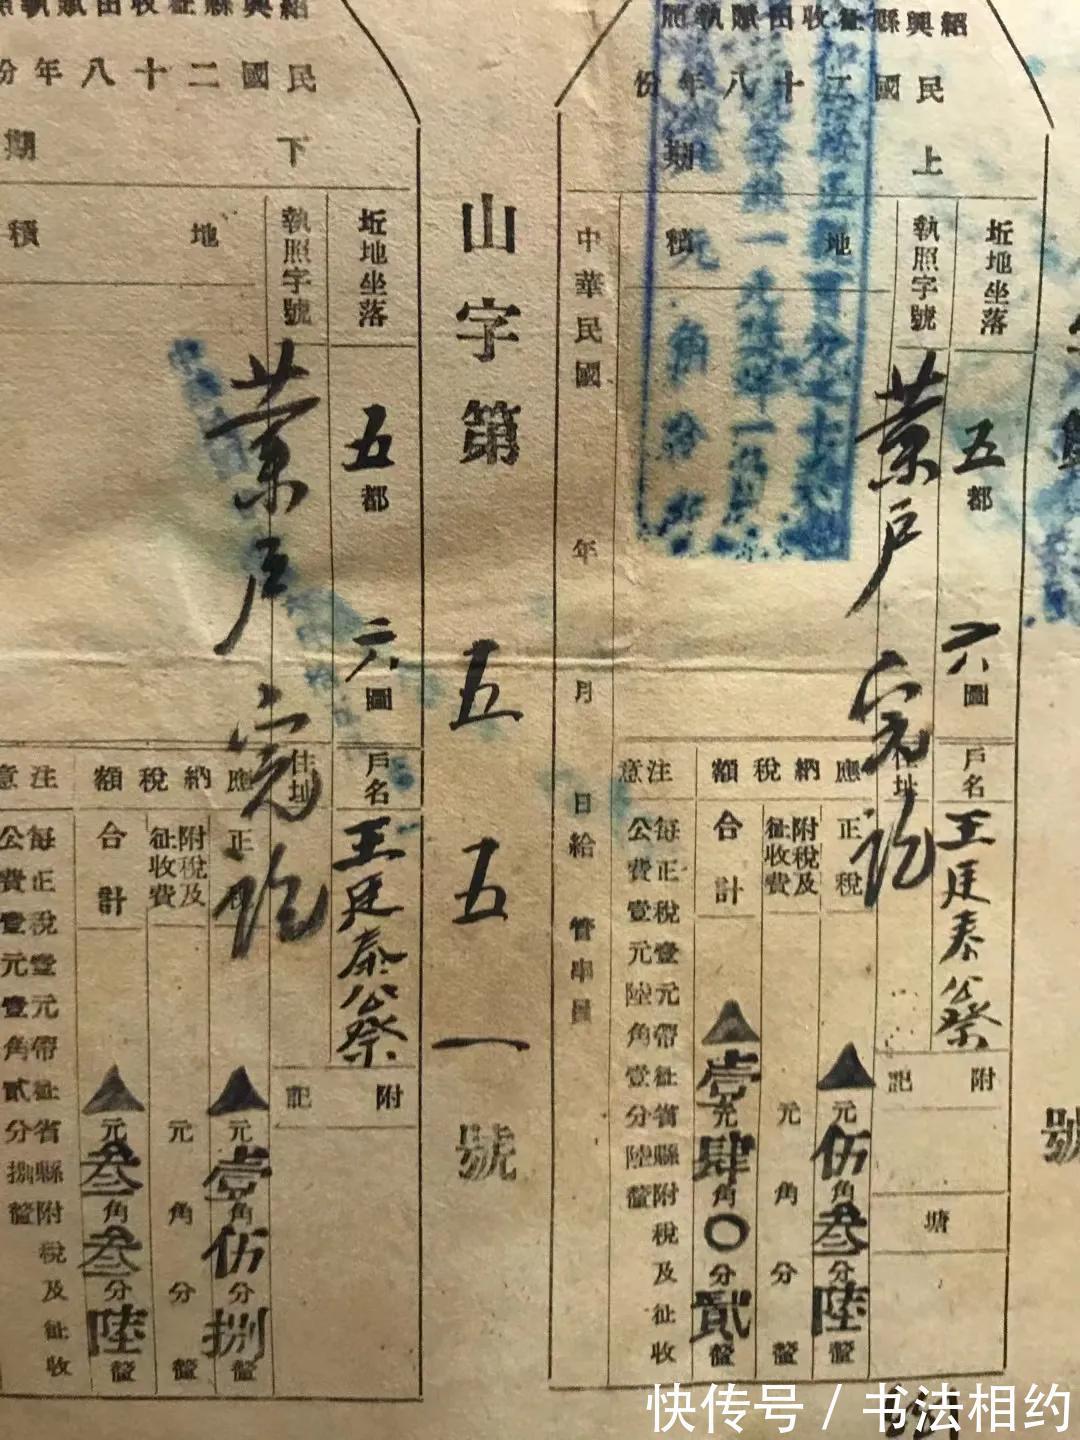 紹興縣征收田賦執照
民國二十八年份
上期
坵地坐落
五都
六圖
戶名
王廷泰公祭
執照字號
業戶完訖
住址
附記
塘
地積
應納稅額
正稅
▲元伍角叁分陸釐
附稅及征收費
元角分釐
合計
▲壹元肆角〇分貳釐
注意
每正稅壹元帶征省縣附稅及征收
公費壹元陸角壹分陸釐
中華民國 年 月 日給 管串員
山字第五五一號
紹興縣征收田賦執照
民國二十八年份
下期
坵地坐落
五都
六圖
戶名
王廷泰公祭
執照字號
業戶完訖
住址
附記
地積
應納稅額
正稅
▲元壹角伍分捌釐
附稅及征收費
元角分釐
合計
▲元叁角叁分陸釐
注意
每正稅壹元帶征省縣附稅及征收
公費壹元壹角貳分捌釐
號
快传号 / 书法相约